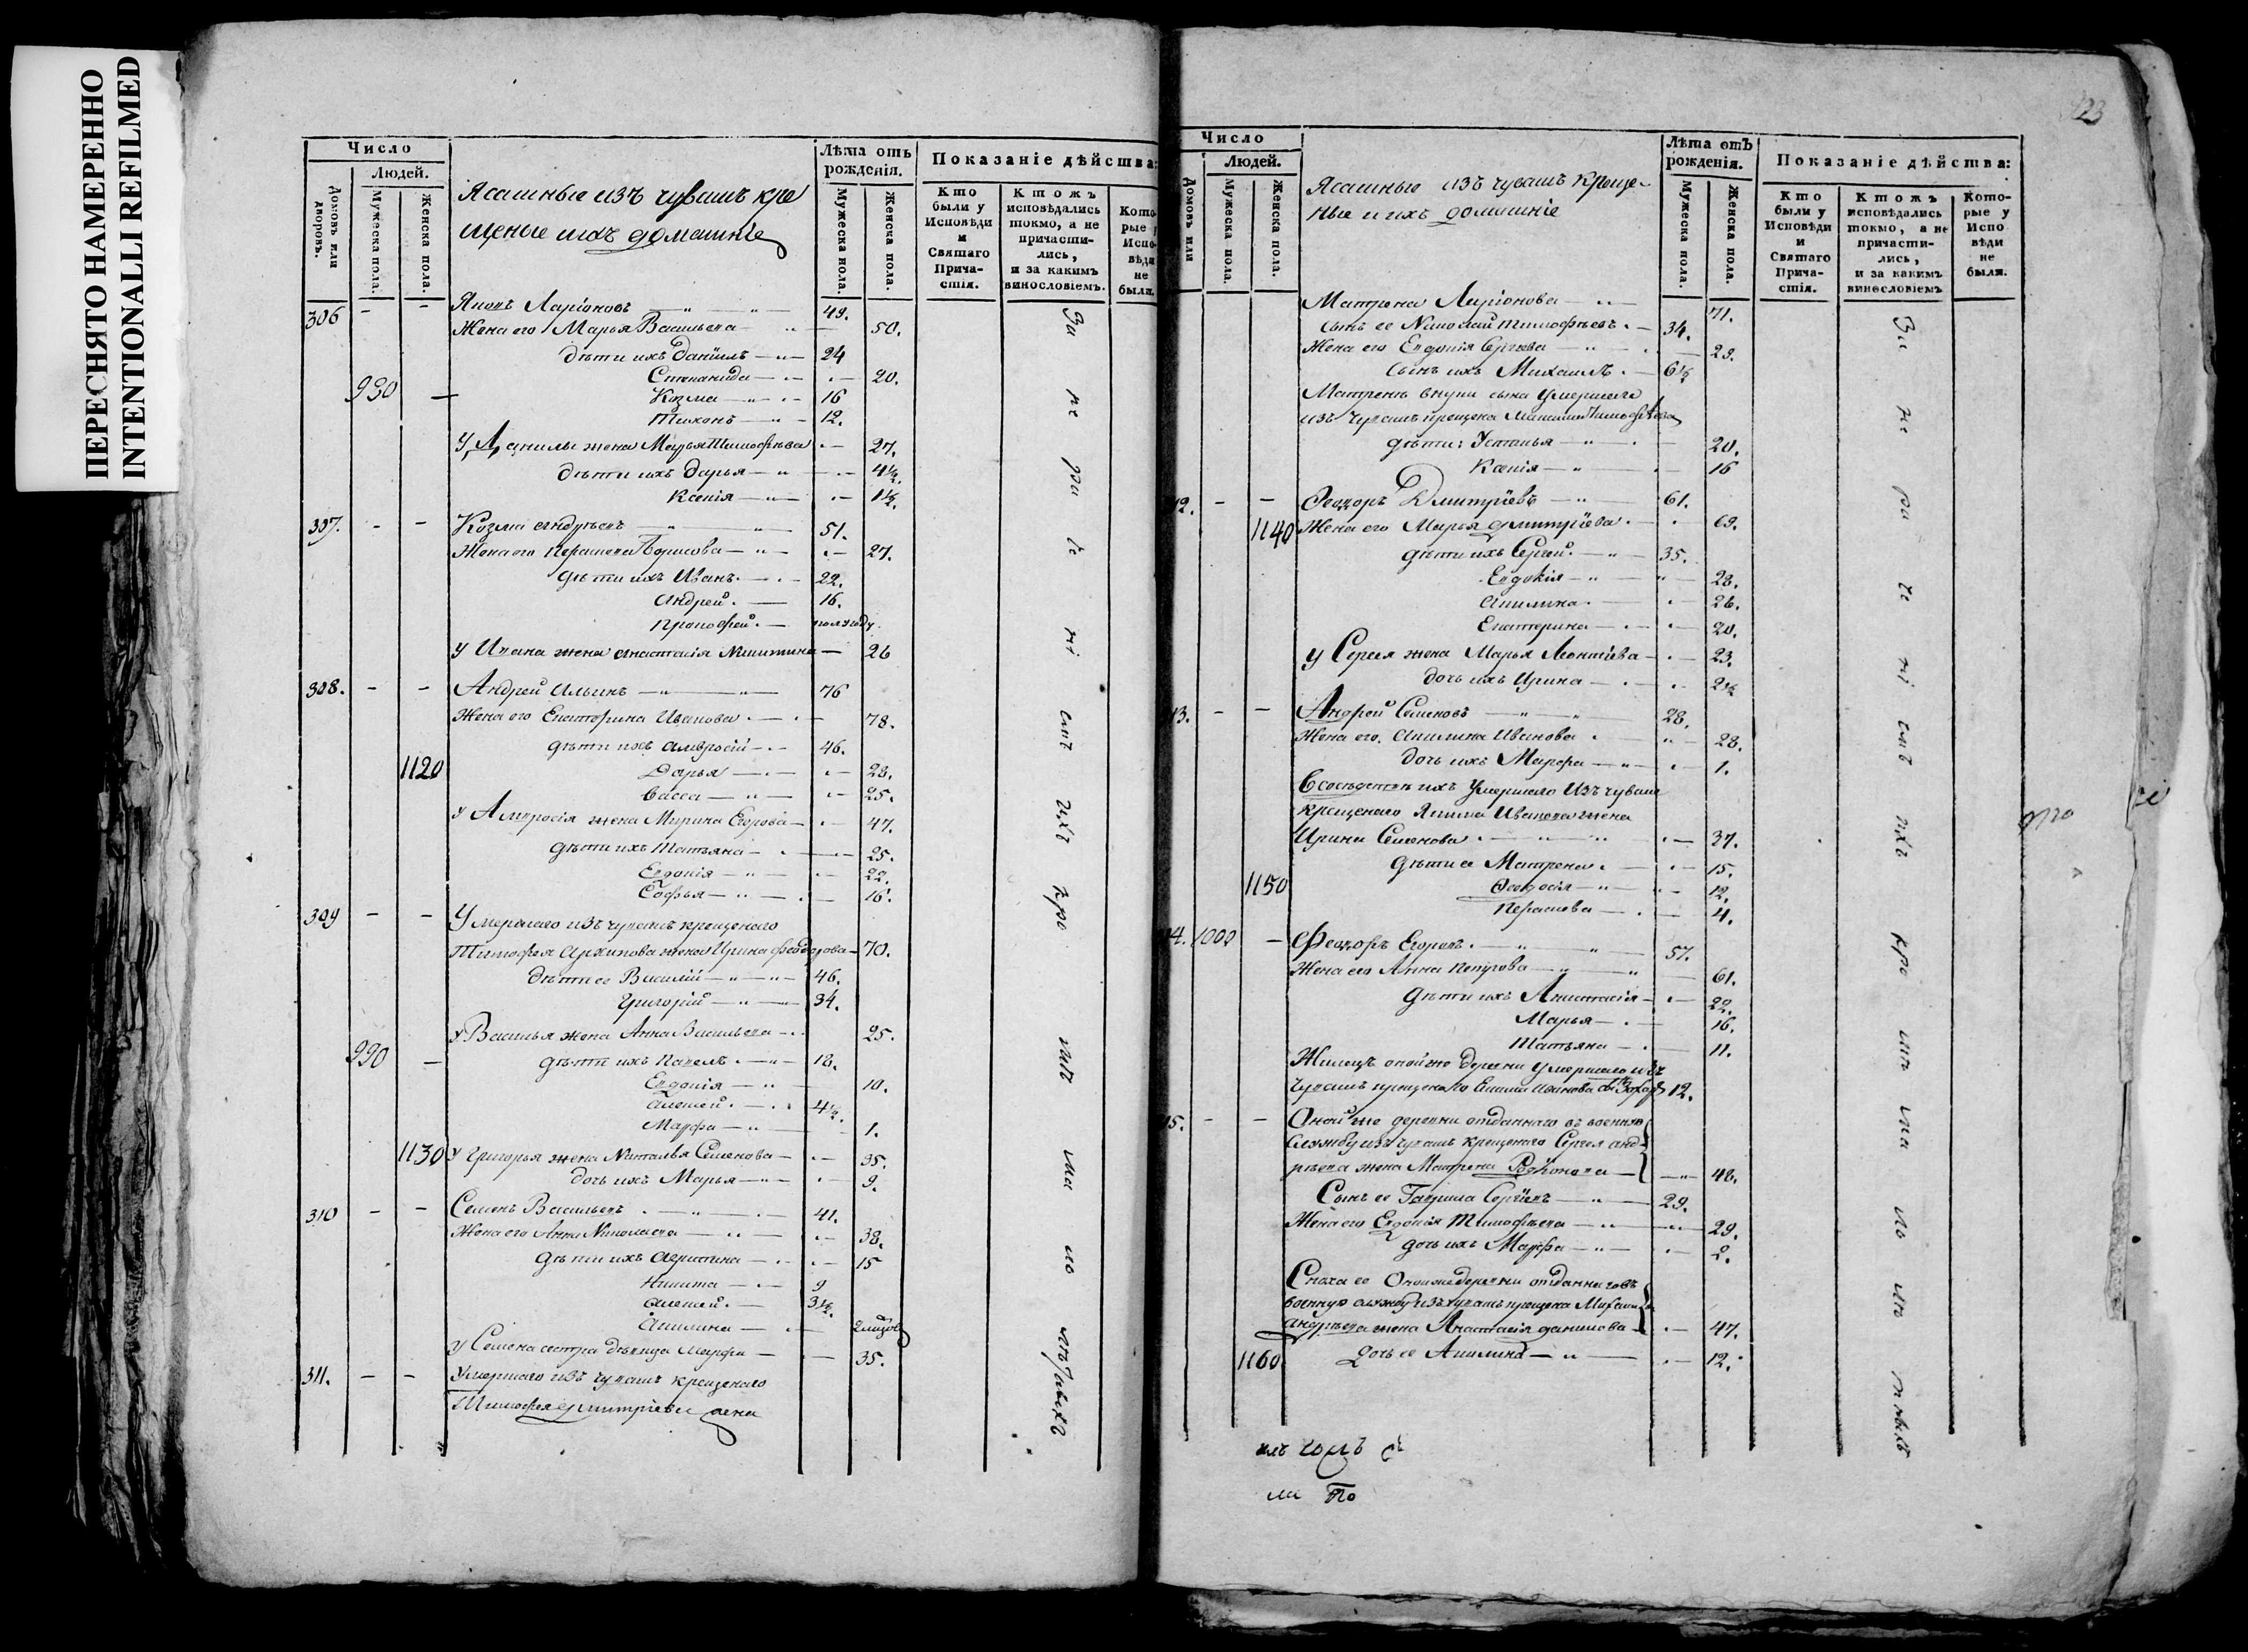 ПЕРЕСНЯТО НАМЕРЕННО
INTENTIONALLI REFILMED
Число
Людей.
Домовъ или дворовъ.
Мужеска пола.
Женска пола.
Ясашные изъ чувашъ кре
щеные ихъ домашніе
Лѣта отъ рожденія.
Мужеска пола.
Женска пола.
Показаніе дѣйства:
Кто были у Исповѣди и Святаго Прича-стія.
Ктожъ исповѣдались токмо, а не причасти-лись, и за какимъ винословіемъ.
306 - - Яковъ Ларіоновъ 49.
Жена его Марья Васильева 50.
дѣти ихъ Даніилъ 24
Степанида 20.
980 — Козма 16
Тихонъ 12.
У Данилы жена Марья Тимофѣева 27.
дѣти ихъ Дарья 4½.
Ксенія 1½.
307. - - Козма Андрѣевъ 51.
Жена его Борисова 27.
дѣти ихъ Иванъ 22.
Андрей 16.
полугоду
У Ивана жена Анастасія Никитина 26
308. - - Андрей Ильинъ 76
Жена его Екатерина Иванова 78.
дѣти ихъ Амвросій 46.
1120 Дарья 28.
Васса 25.
У Амвросія жена Марина Егорова 47.
дѣти ихъ Татьяна 25.
Евдокія 22.
Софья 16.
309 - - Умершаго изъ чувашъ крещенаго
Тимофея Архипова жена Ирина Феодорова 70.
дѣти ее Василій 46.
Григорій 34.
У Василья жена Анна Васильева 25.
990 — дѣти ихъ Павелъ 18.
Евдокія 10.
Алексей 4½.
Марфа 1.
1130 У Григорья жена Наталья Семенова 35.
дочь ихъ Марья 9.
310 - - Семенъ Васильевъ 41.
Жена его Анна Николаева 38.
дѣти ихъ 15
Никита 9
Алексей 3½.
Акилина
У Семена сестра дѣвица Марфа 35.
311. - - Умершаго изъ чувашъ крещенаго
Тимофея Дмитріева жена
За не ра че ні емъ ихъ
423
Число
Людей.
Домовъ или
Мужеска пола.
Женска пола.
Ясашные изъ чувашъ креще-
ные и ихъ домашніе
Лѣта отъ рожденія.
Мужеска пола.
Женска пола.
Показаніе дѣйства:
Кто были у Исповѣди и Святаго Прича-стія.
Ктожъ исповѣдались токмо, а не причасти-лись, и за какимъ винословіемъ
Кото-рые у Испо вѣди не были.
Матрена Ларіонова 71.
Сынъ ее Николай Тимофѣевъ 34.
Жена его Евдокія Сергѣева 29.
Сынъ ихъ Михаилъ 6½
Матрены внуки сына умершаго
изъ чувашъ крещена Тимофѣева
дѣти: Устинья 20.
Ксенія 16
12. - - Феодоръ Дмитріевъ 61.
1140 Жена его Марья Дмитріева 69.
дѣти ихъ Сергей 35.
Евдокія 28.
Акилина 26.
Екатерина 20.
У Сергея жена Марья Леонтіева 23.
дочь ихъ Ирина 2½
13. - - Андрей Семеновъ 28.
Жена его Акилина Иванова 28.
дочь ихъ Марфа 1.
В соседствѣ ихъ умершаго изъ чуваш
крещенаго Якима Иванова жена
Ирина Семенова 37.
дѣти ее Матрена 15.
1150 Феодосія 12.
4.
14. 1000 - Феодоръ Егоровъ 57.
Жена его Анна Петрова 61.
дѣти ихъ Анастасія 22.
Марья 16.
Татьяна 11.
Жилецъ оной же деревни умершаго изъ
чувашъ крещенаго Иванова 12.
15. - - Оной же деревни отданнаго въ военную
службу изъ чувашъ крещенаго Сергея Анд-
рѣева жена Матрена Родіонова 48.
Сынъ ее Гаврила Сергіевъ 29.
Жена его Евдокія Тимофѣева 29.
дочь ихъ Марфа 2.
Сноха ее Оной же деревни отданнаго въ
военную службу изъ чувашъ крещена Михаила
Андрѣева жена Анастасія Данилова 47.
1160 Дочь ее Акилина 12.
За не ра че ні емъ ихъ